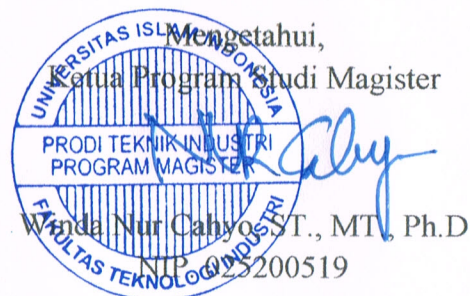 Mengetahui,
Ketua Program Studi Magister
UNIVERSITAS ISLAM INDONESIA
PRODI TEKNIK INDUSTRI
PROGRAM MAGISTER
FAKULTAS TEKNOLOGI INDUSTRI
Winda Nur Cahyo, ST., MT., Ph.D
NIP. 025200519